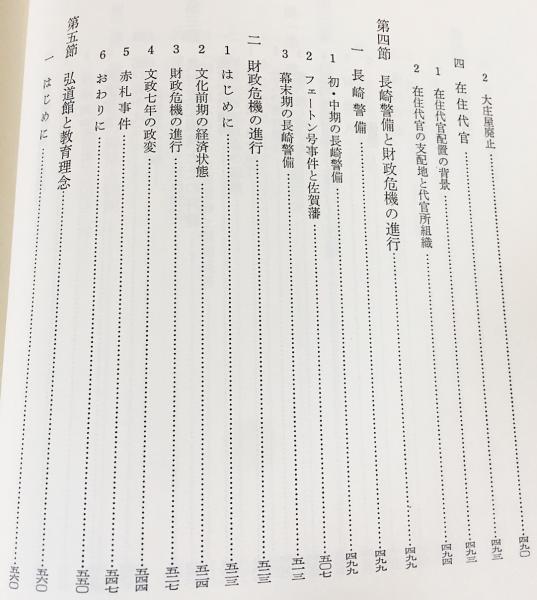 2 大庄屋廃止……四九〇
四 在住代官……四九三
1 在住代官配置の背景……四九三
2 在住代官の支配地と代官所組織……四九四
第四節 長崎警備と財政危機の進行……四九九
一 長崎警備……四九九
1 初・中期の長崎警備……四九九
2 フェートン号事件と佐賀藩……五〇七
3 幕末期の長崎警備……五一三
二 財政危機の進行……五二三
1 はじめに……五二三
2 文化前期の経済状態……五二四
3 財政危機の進行……五二七
4 文政七年の政変……五四四
5 赤札事件……五四七
6 おわりに……五五〇
第五節 弘道館と教育理念……五六〇
一 はじめに……五六〇